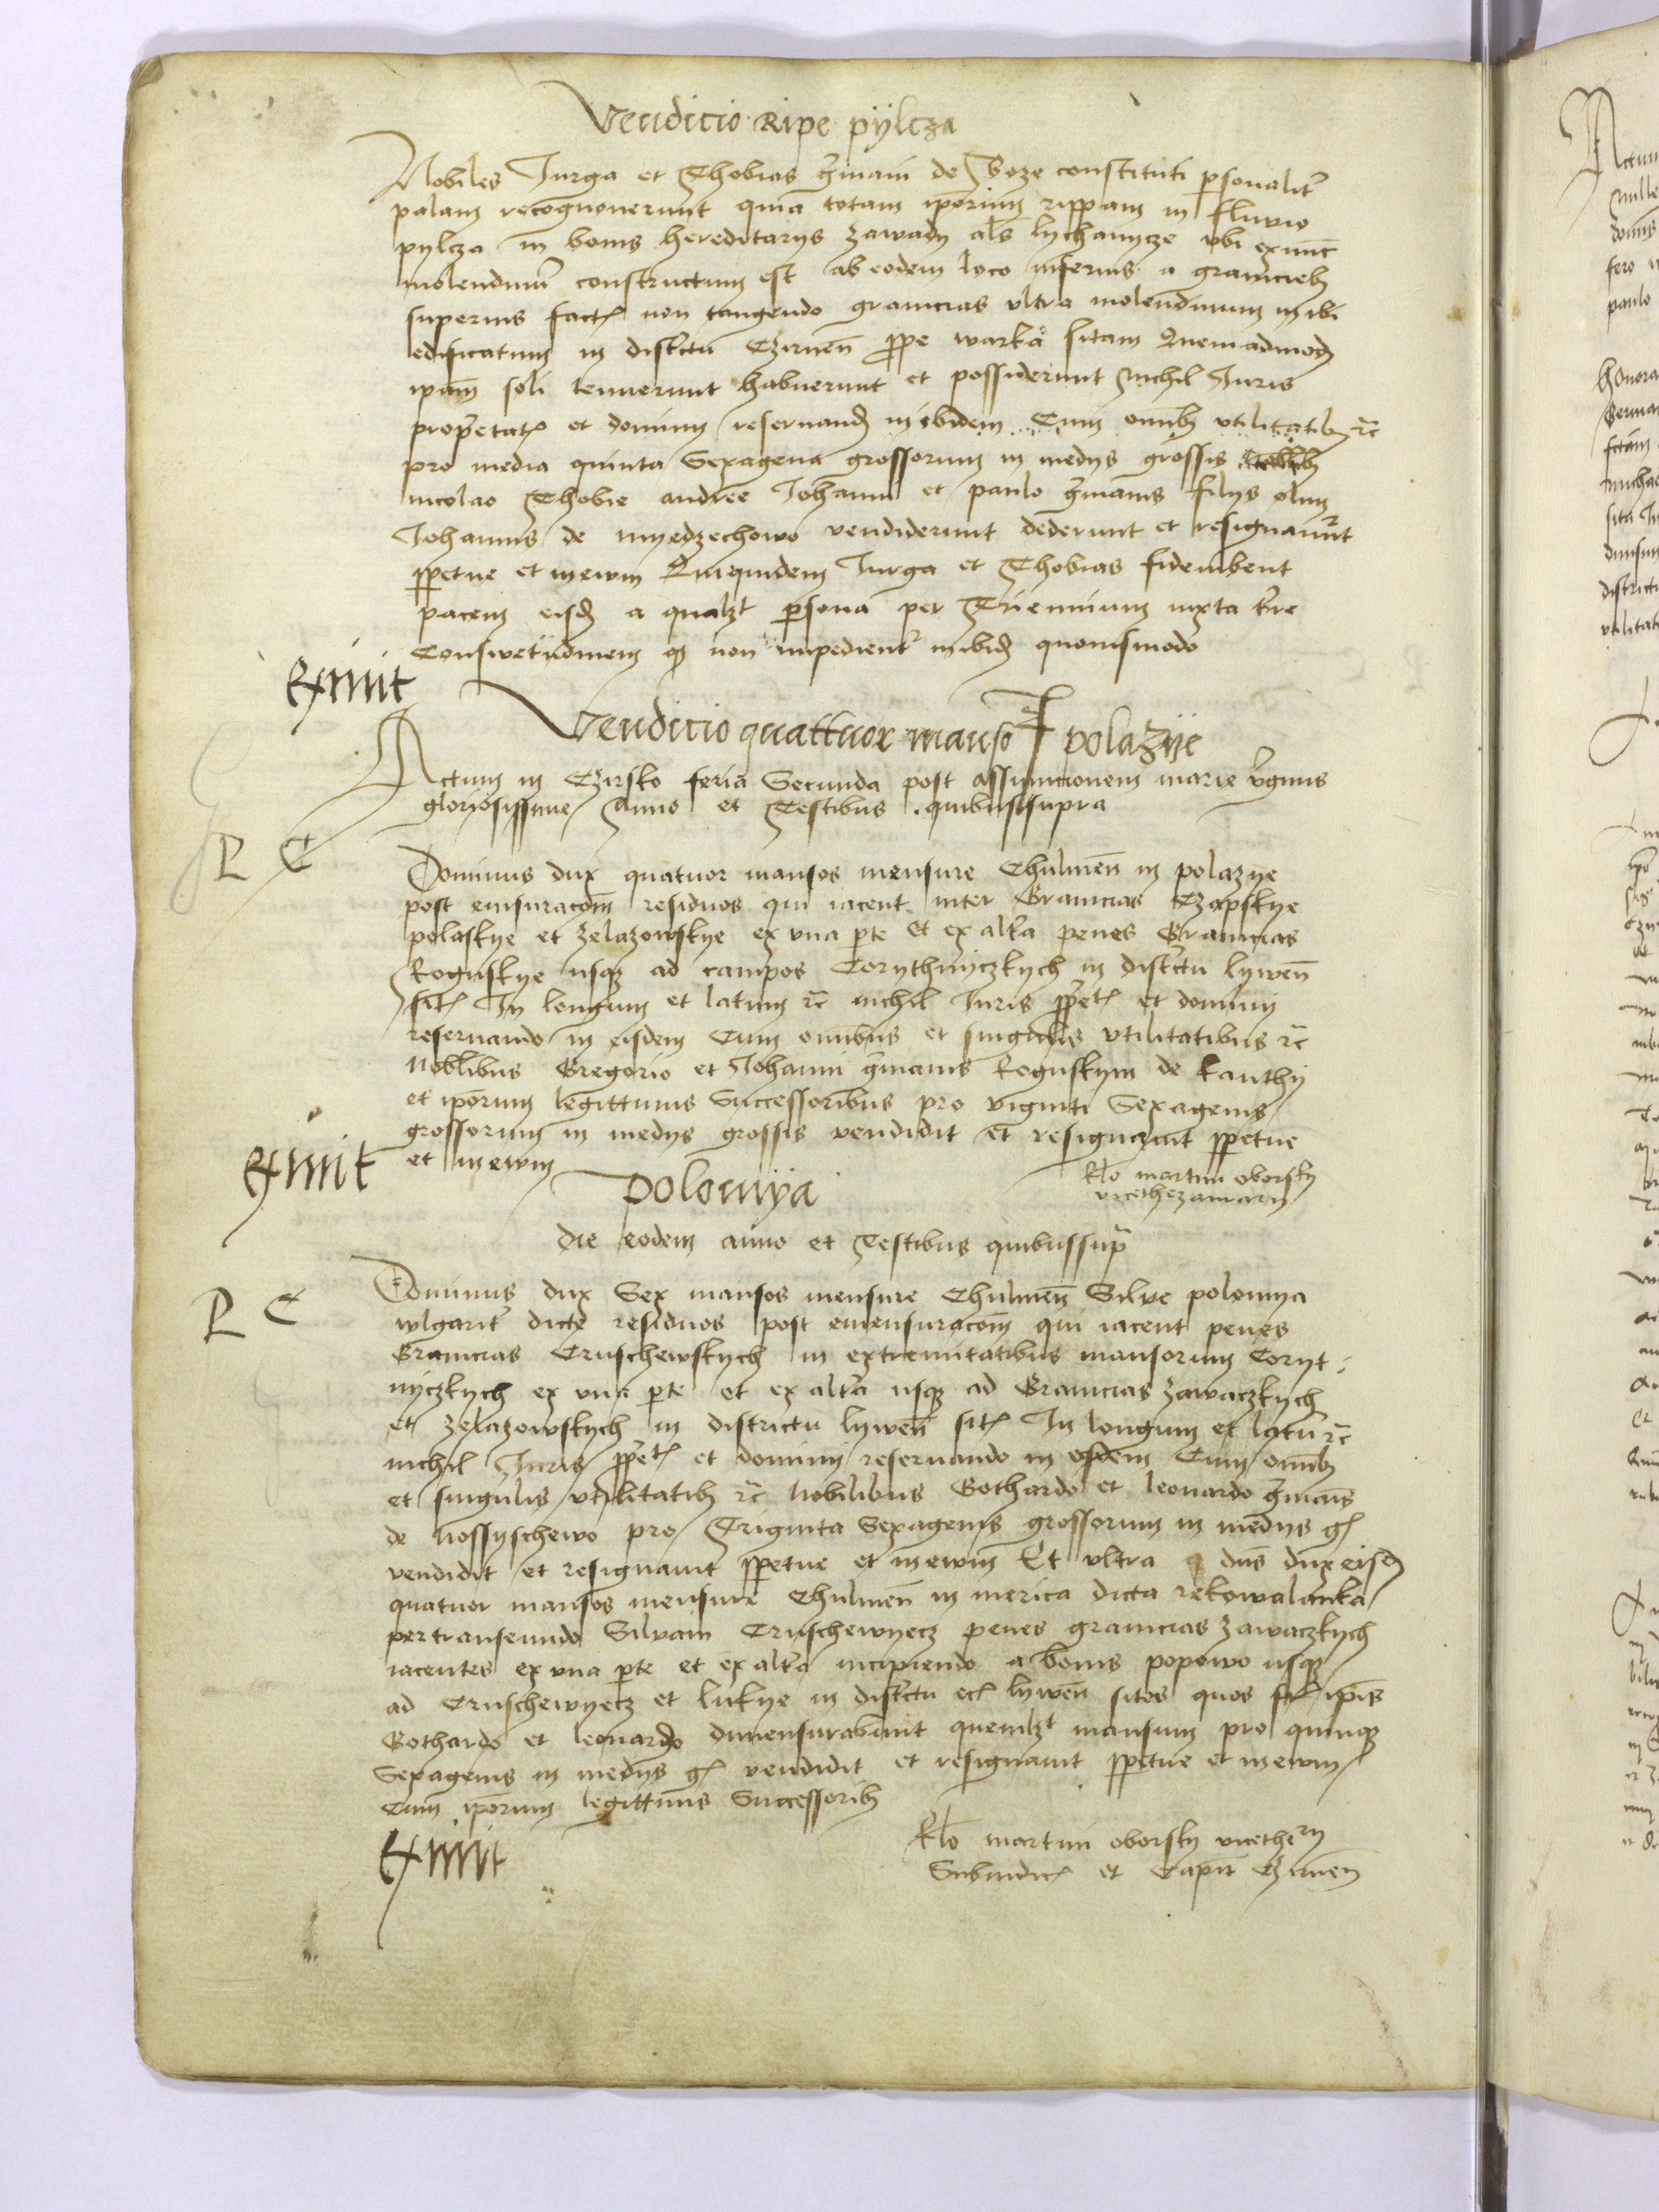 Vendicio Ripe pÿlcza
Nobiles Jurga et Thobias g̃mani de Boze constituti p̱sonalit͛
palam recognoverunt quia totam ip̃orum rippam in fluvio
pylcza in bonis hereditarys zawady al͂s lychanycze vbi exnu͂c
molendinu͂ constructum est ab eodem loco inferius a graniciebꝫ
superius fact͛ non tangendo granicias vltra molendinum inibi
edificatum in distr͛ctu Czirneñ ꝓpe warka sitam Quemadmodꝫ
ip̃am soli tenuerunt habuerunt et possiderunt Nichil Juris
prop̱etat͛ et dominii reservand͛ in ibidem Cum om͂ibꝫ vtilitatibꝫ ꝛc͂
pro media quinta Sexagena grossorum in medys grossis
nicolao Thobie andree Johanni et paulo g̃manis filys olim
Johannis de myedzechowo vendiderunt dederunt et resignaver͂t
ꝑpetue et inewm Quiquidem Jurga et Thobias fideiubent
pacem eisd͛ a qualꝫt p̱sona per Triennium iuxta t͛re
Conswetudinem qꝫ non impedient͛ inibid͛ quovismodo
Exivit
Vendicio quattuor mansoꝝ polazÿe
Actum in Czirsko feria Secunda post assumcionem marie v͛ginis
gloriosissime Anno et Testibus quibussupra
R C
Dominus dux quatuor mansos mensure Chulmeñ in polazye
post emensuracõm residuos qui iacent inter Granicias Czapskye
polaskye et zelazowskye ex vna p̱te Et ex alt͛a penes Granicias
Roguskye usqꝫ ad campos Corythnyczkych in distr͛ctu lyweñ
sit͛ In longum et latum ꝛc͂ nichil Juris ꝓp̱et͛ et dominii
reservando in eisdem Cum omnibus et singulis vtilitatibus ꝛc͂
Nob̃libus Gregorio et Johanni g̃manis Roguskym de Kanthy
et ip̃orum legittimis Successoribus pro viginti Sexagenis
grossorum in medys grossis vendidit et resignavit ꝑpetue
et inewm
Exivit
Rl͂o martini oborsky
vicethezaurarii
polomÿa
Die eodem anno et Testibus quibussup͂
R C
Dominus dux Sex mansos mensure Chulmeñ Silve polomya
wlgarit͛ dicte residuos post emensuracõm qui iacent penes
Granicias Cruschewskych in extremitatibus mansorum Coryt
nyczkych ex vna p̱te et ex alt͛a usqꝫ ad Granicias zawaczkych
et zelazowskych in districtu lyweñ sit͛ In longum et latu͂ ꝛc͂
nichil Juris ꝓp̱et͛ et dominii reservando in eisdem Cum om͂ibꝫ
et singulis vtilitatibꝫ ꝛc͂ Nobilibus Gothardo et leonardo g̃mañis
de nossyschewo pro Triginta Sexagenis grossorum in medys g͛
vendidit et resignavit ꝑpetue et inewm Et vltra qꝫ dñs dux eisd͛
quatuor mansos mensure Chulmeñ in merica dicta rekowalanka
pertranseundo Silvam Cruschewyecz penes granicias zawaczkych
iacentes ex vna p̱te et ex alt͛a incipiendo a bonis popowo usqꝫ
ad Cruschewyecz et lukye in distr͛ctu ec͛ lyweñ sitos quos sil͛ ip̃is
Gothardo et leonardo dimensurabunt quemlꝫt mansum pro quinqꝫ
Sexagenis in medys g͛ vendidit et resignavit ꝑpetue et inewm
Cum ip̃orum legittimis Successoribꝫ
Exivit
Rl͂o martini oborsky vicethe͛ry
Subiudic͛ et Capit͛ Czirneñ